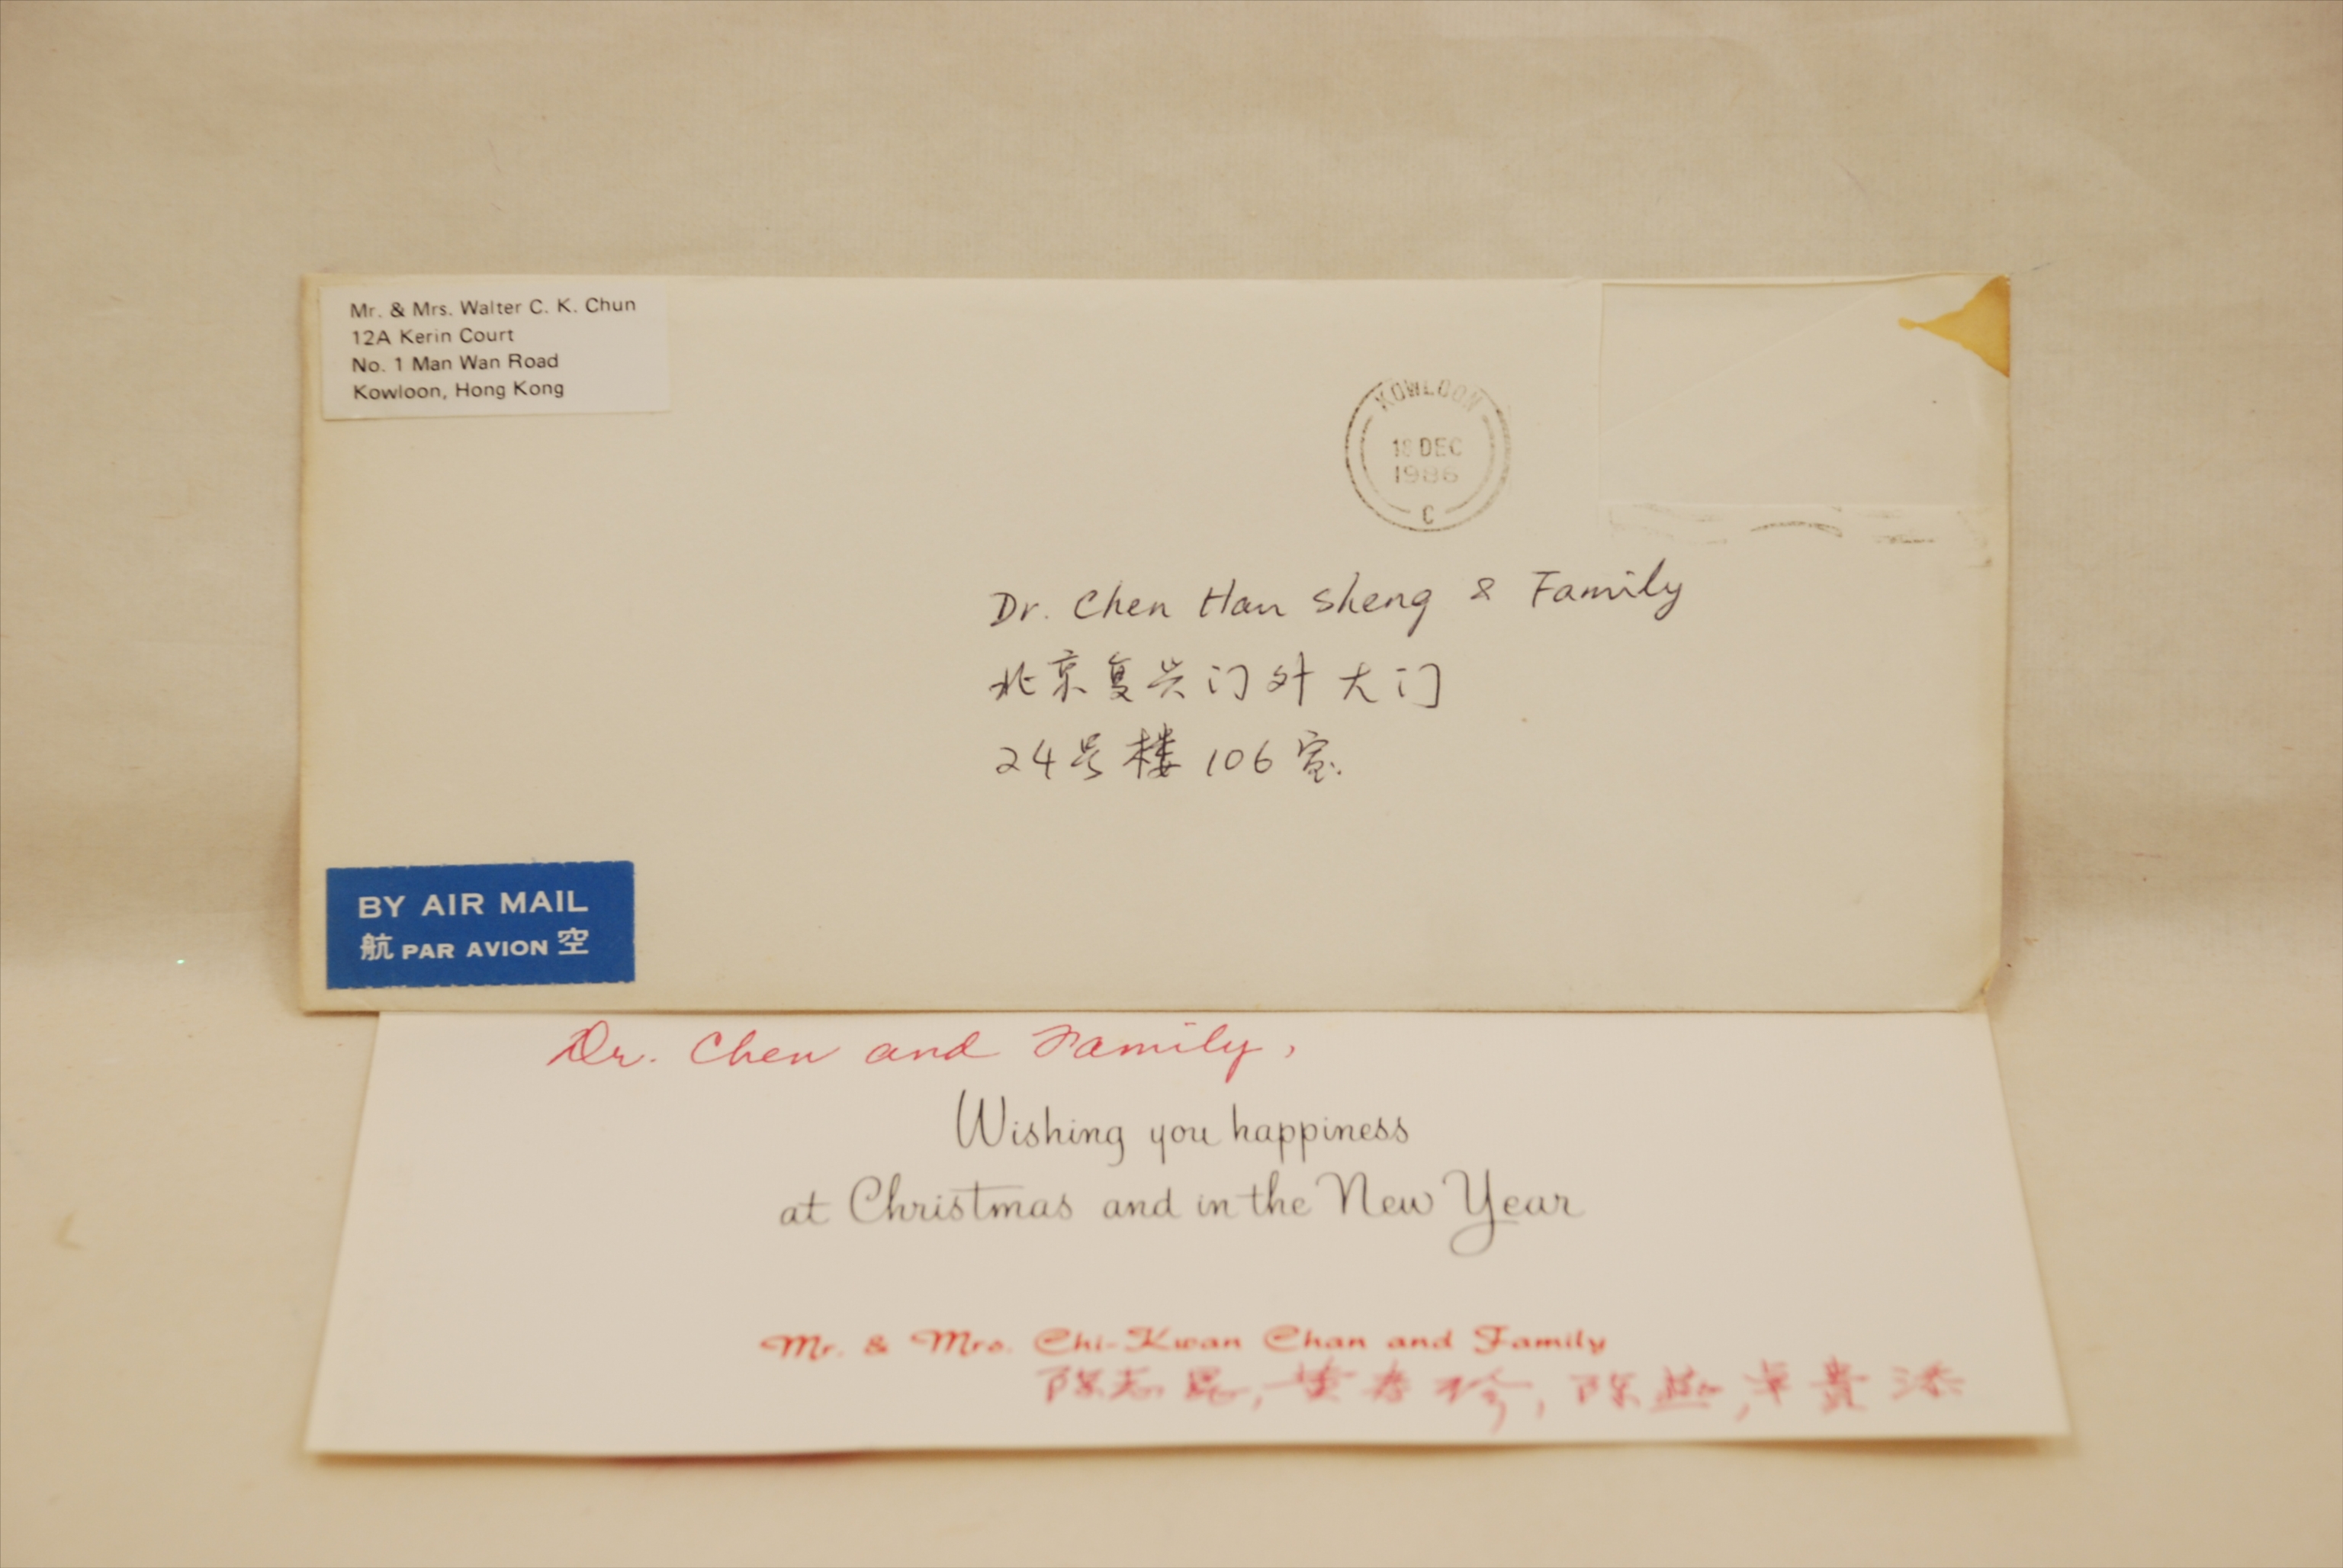 Mr. & Mrs. Walter C. K. Chun
12A Kerin Court
No. 1 Man Wan Road
Kowloon, Hong Kong
KOWLOON
18 DEC
1986
C
Dr. Chen Han Sheng & Family
北京复兴门外大门
24号楼106室.
BY AIR MAIL
航 PAR AVION 空
Dr. Chen and Family,
Wishing you happiness
at Christmas and in the New Year
Mr. & Mrs. Chi-Kwan Chan and Family
陈志昆, 黄